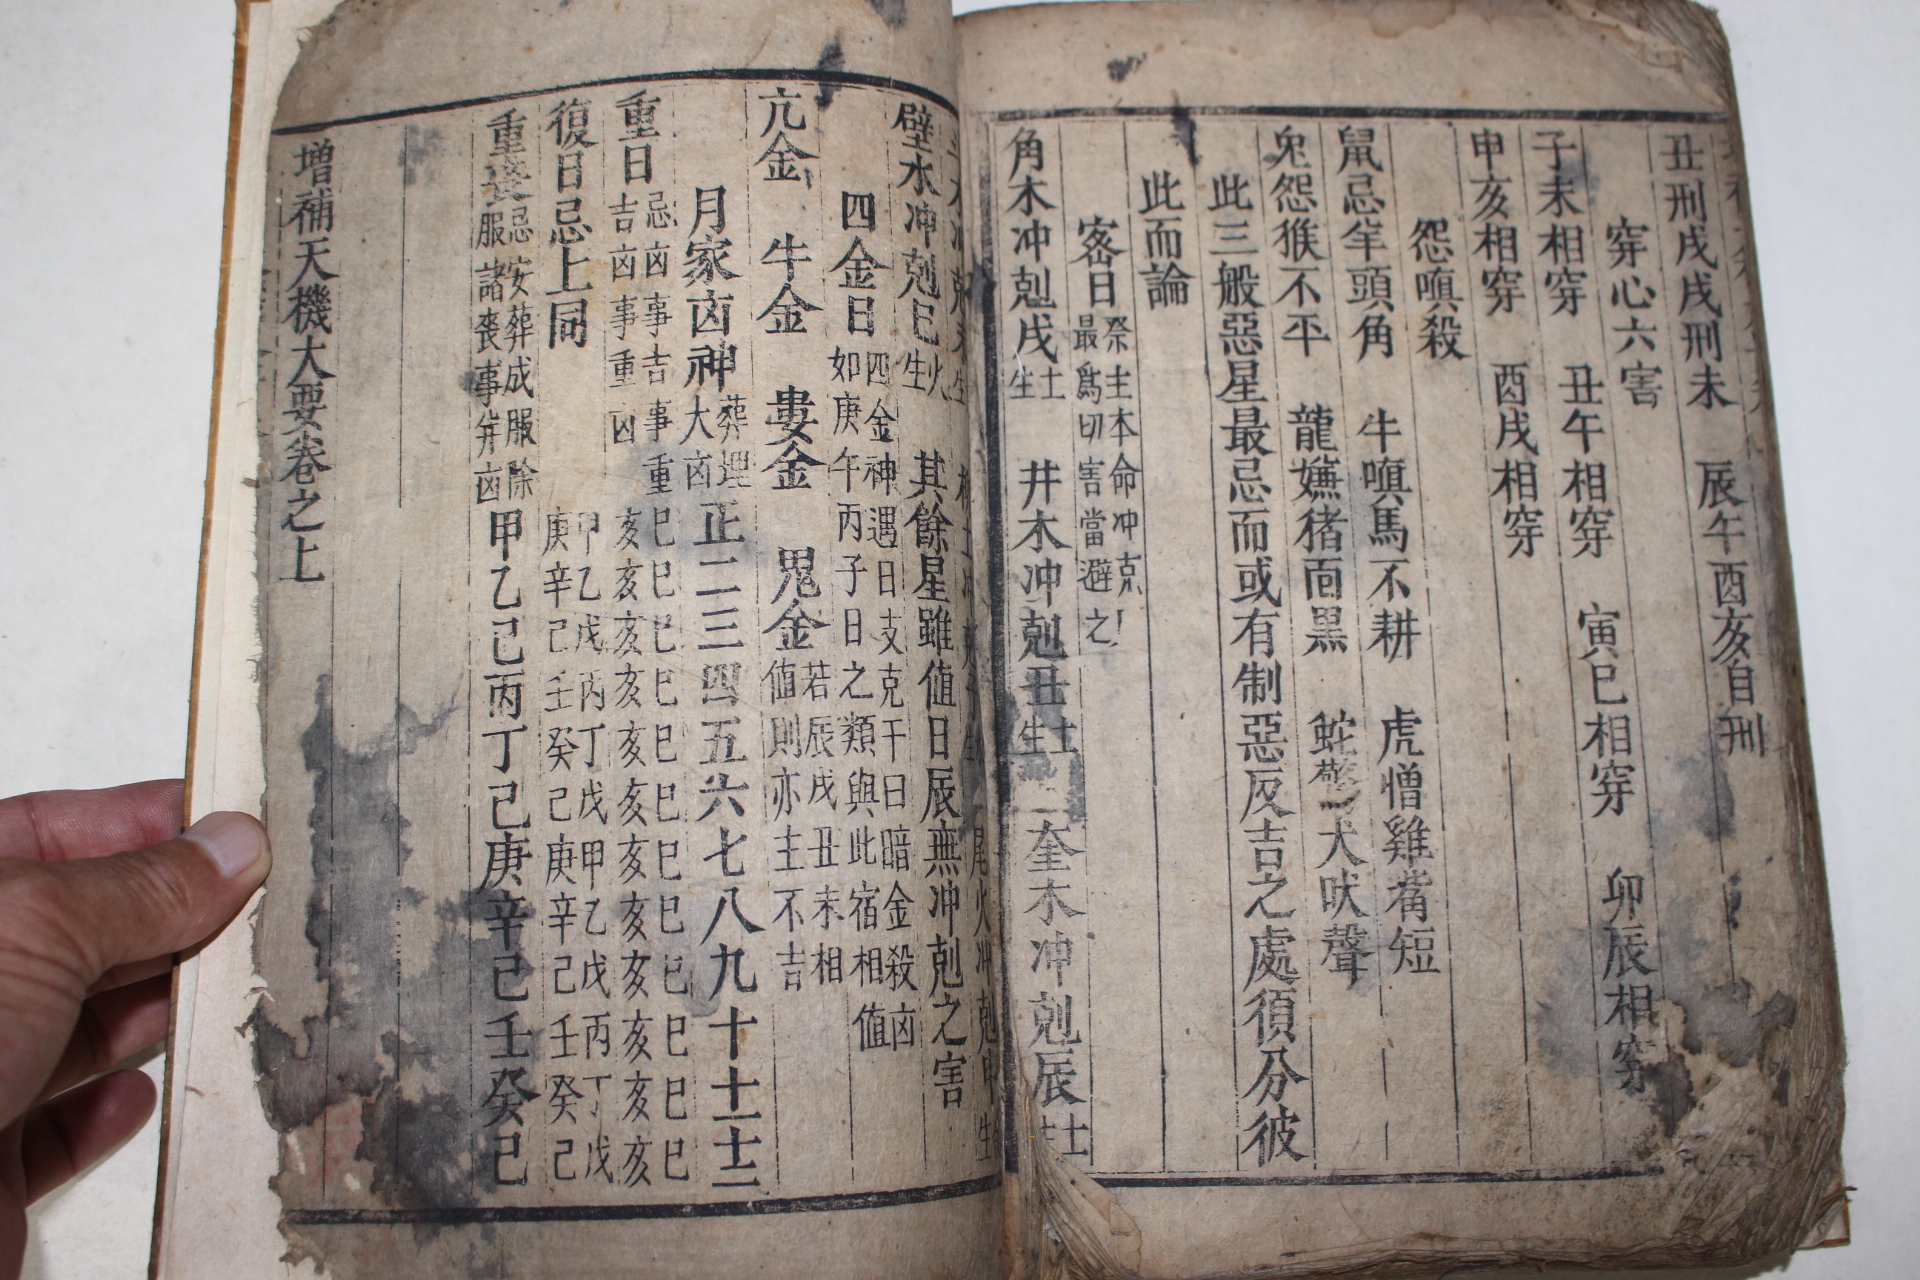 丑刑戌戌刑未　辰午酉亥自刑
穿心六害
子未相穿　丑午相穿　寅巳相穿　卯辰相穿
申亥相穿　酉戌相穿
怨嗔殺
鼠忌羊頭角　牛嗔馬不耕　虎憎雞觜短
兔怨猴不平　龍嫌猪面黑　蛇驚犬吠聲
此三般惡星最忌而或有制惡反吉之處須分彼
此而論
宻日祭主本命冲克
最為切害當避之
角木冲剋戌土生　井木冲剋丑土生　奎木冲剋辰土
壁水冲剋巳火生　其餘星雖値日辰無冲剋之害
四金日四金神遇日支克干曰暗金殺凶
如庚午丙子日之類與此宿相値
亢金　牛金　婁金　鬼金若辰戌丑未相
値則亦主不吉
月家凶神葬埋大凶正二三四五六七八九十十一十二
重日忌凶事吉事重
吉凶事重凶
巳巳巳巳巳巳巳巳巳巳巳巳
亥亥亥亥亥亥亥亥亥亥亥亥
復日忌上同
甲乙戊丙丁戊甲乙戊丙丁戊
庚辛己壬癸己庚辛己壬癸己
重喪忌安葬成服除
服諸喪事并凶
甲乙己丙丁己庚辛己壬癸己
增補天機大要卷之上